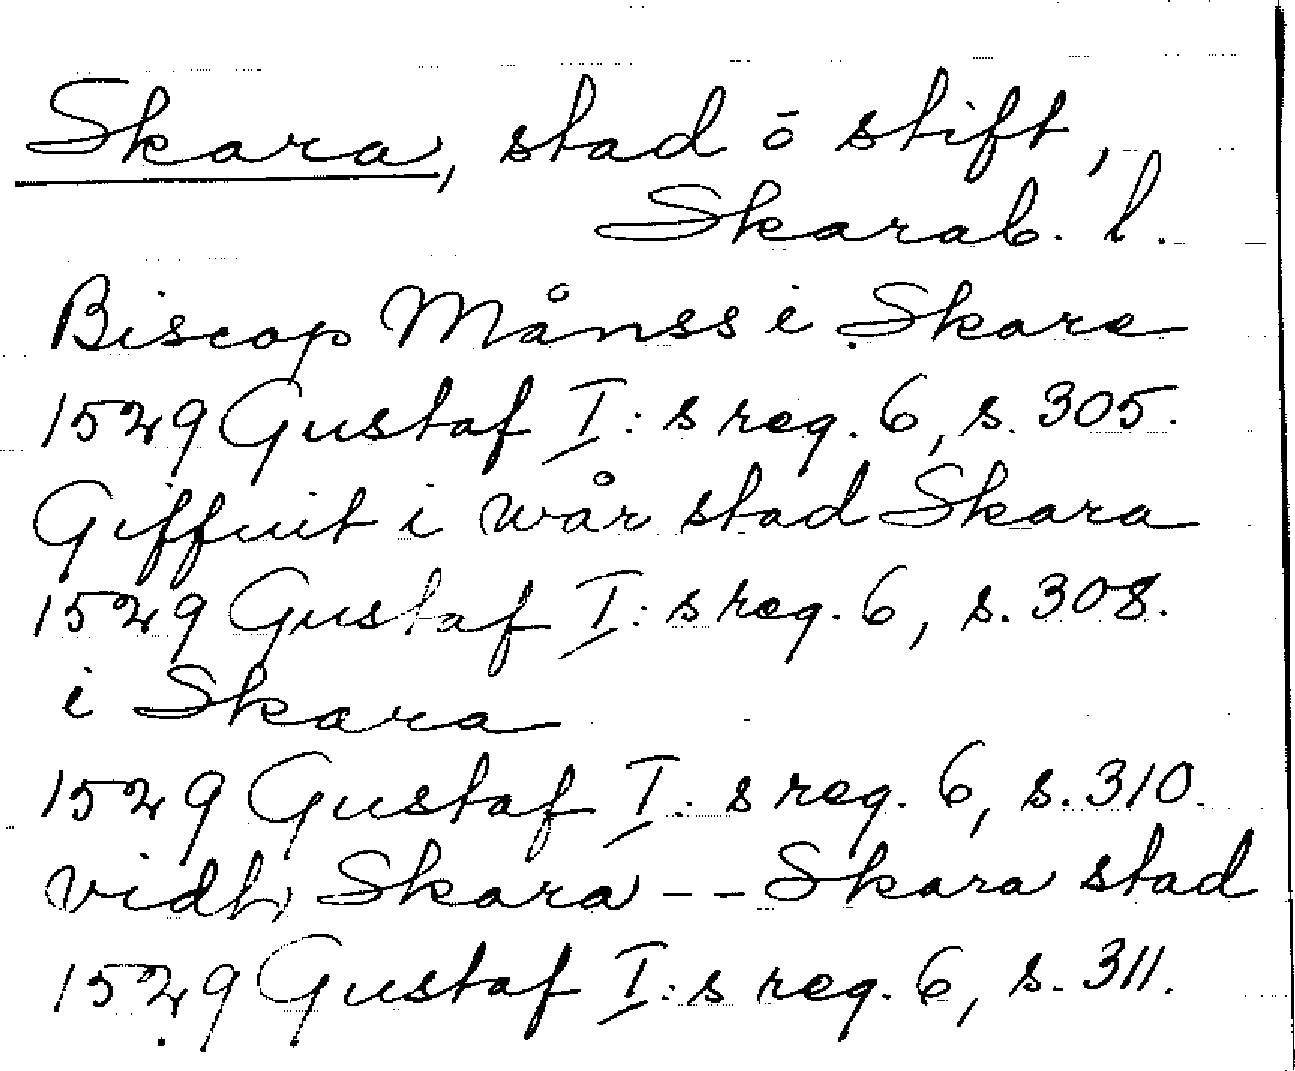 Skara, stad ō stift,
Skarab. l.
Biscop Månss i Skare
1529 Gustaf I:s reg. 6, s. 305.
Giffuit i wår stad Skara
1529 Gustaf I:s reg. 6, s. 308.
i Skara
1529 Gustaf I:s reg. 6, s. 310.
vidh Skara -- Skara stad
1529 Gustaf I:s reg. 6, s. 311.